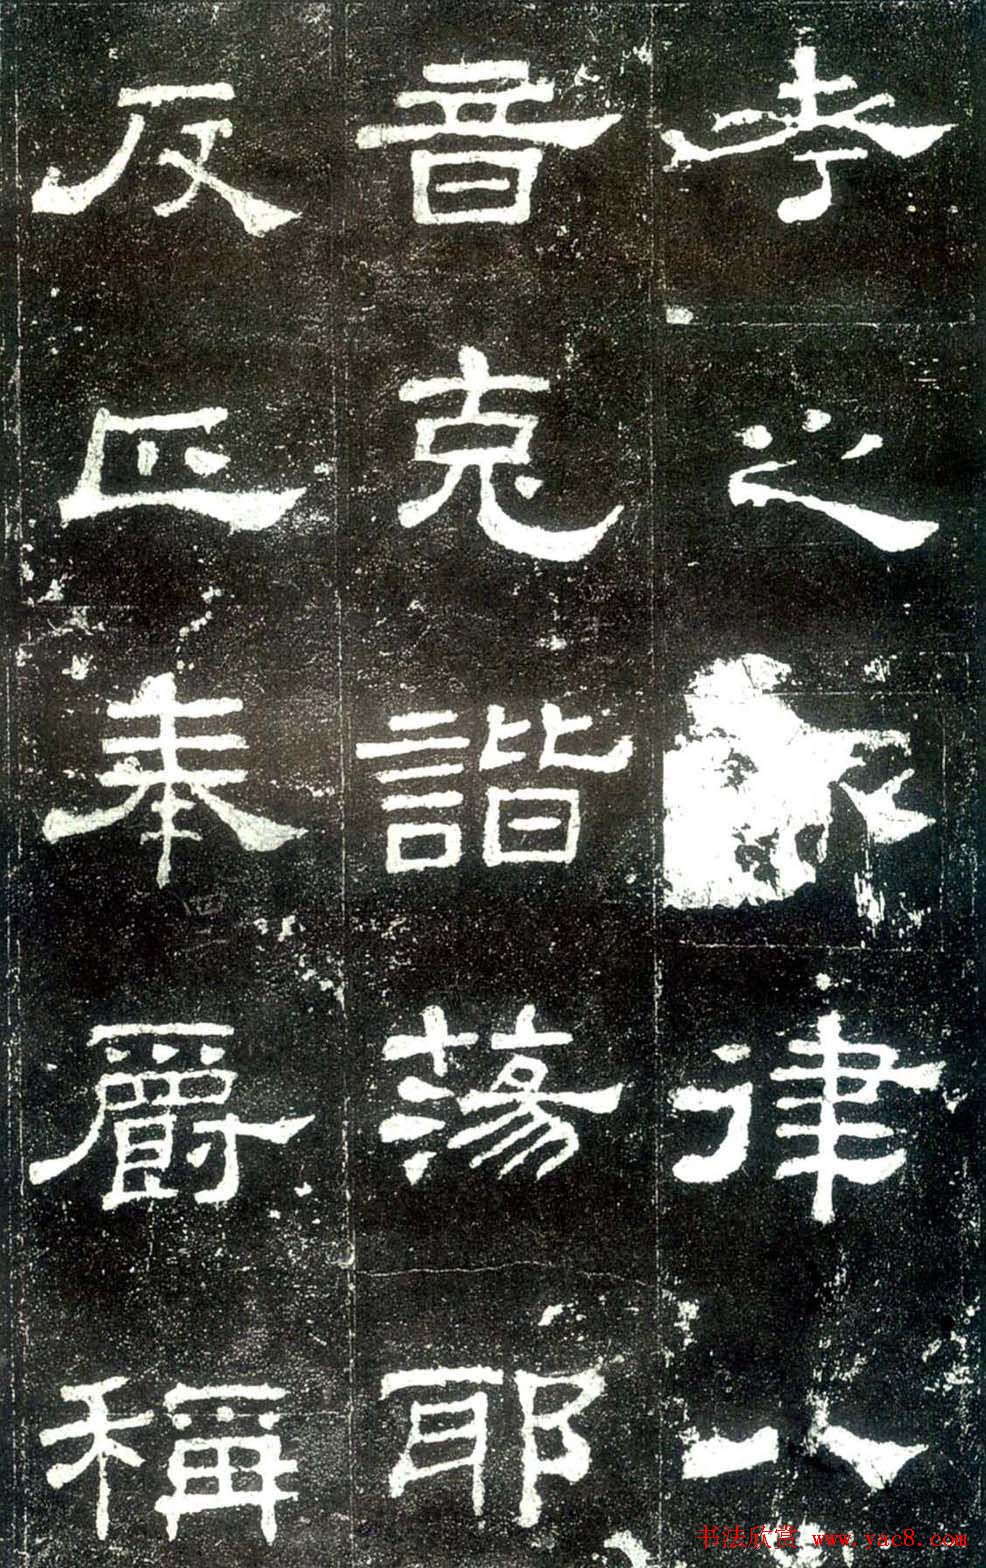 考之律八
音克諧蕩耶
反正奉爵稱
书法欣赏 www.yac8.com